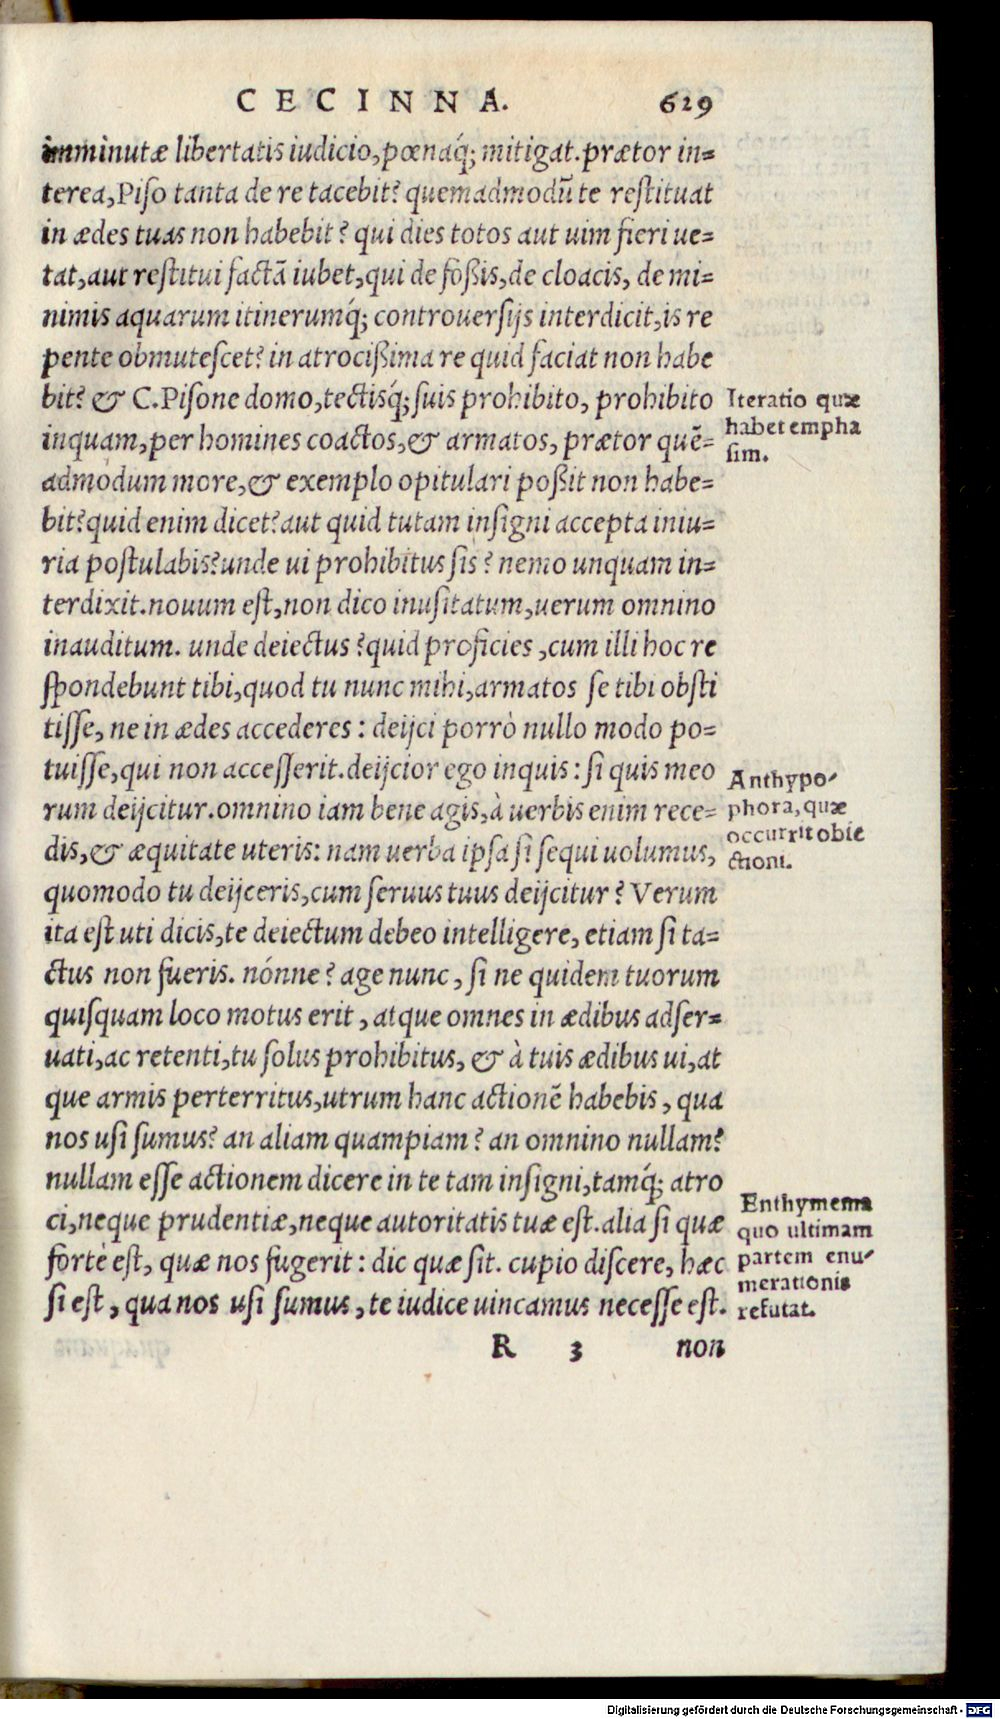 CECINNA. 629
imminutæ libertatis iudicio, pœnaq́; mitigat. prætor in=
terea, Piso tanta de re tacebit? quemadmodū te restituat
in ædes tuas non habebit? qui dies totos aut uim fieri ue=
tat, aut restitui factā iubet, qui de foßis, de cloacis, de mi=
nimis aquarum itinerumq́; controuersijs interdicit, is re
pente obmutescet? in atrocißima re quid faciat non habe
bit? & C. Pisone domo, tectisq́; suis prohibito, prohibito
inquam, per homines coactos, & armatos, prætor quē=
admodum more, & exemplo opitulari poßit non habe=
bit? quid enim dicet? aut quid tutam insigni accepta iniu=
ria postulabis? unde ui prohibitus sis? nemo unquam in=
terdixit. nouum est, non dico inusitatum, uerum omnino
inauditum. unde deiectus? quid proficies, cum illi hoc re
spondebunt tibi, quod tu nunc mihi, armatos se tibi obsti
tisse, ne in ædes accederes: deijci porrò nullo modo po=
tuisse, qui non accesserit. deijcior ego inquis: si quis meo
rum deijcitur. omnino iam bene agis, à uerbis enim rece=
dis, & æquitate uteris: nam uerba ipsa si sequi uolumus,
quomodo tu deijceris, cum seruus tuus deijcitur? Verum
ita est uti dicis, te deiectum debeo intelligere, etiam si ta=
ctus non fueris. nónne? age nunc, si ne quidem tuorum
quisquam loco motus erit, atque omnes in ædibus adser=
uati, ac retenti, tu solus prohibitus, & à tuis ædibus ui, at
que armis perterritus, utrum hanc actionē habebis, qua
nos usi sumus? an aliam quampiam? an omnino nullam?
nullam esse actionem dicere in te tam insigni, tamq́; atro
ci, neque prudentiæ, neque autoritatis tuæ est. alia si quæ
fortè est, quæ nos fugerit: dic quæ sit. cupio discere, hæc
si est, qua nos usi sumus, te iudice uincamus necesse est.
R 3 non
Iteratio quæ
habet empha
sim.
Anthypo-
phora, quæ
occurrit obie
ctioni.
Enthymema
quo ultimam
partem enu-
merationis
refutat.
Digitalisierung gefördert durch die Deutsche Forschungsgemeinschaft - DFG